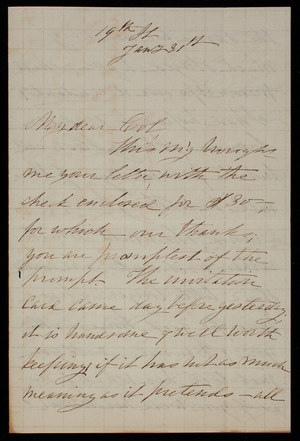 19th St
Jany 31st
My dear Col
This m'g brought
me your let'r with the
check enclosed for $30—,
for which our thanks,
you are promptest of the
prompt. The invitation
card came day before yesterday,
it is handsome & well worth
keeping, if it has not as much
meaning as it pretends — all